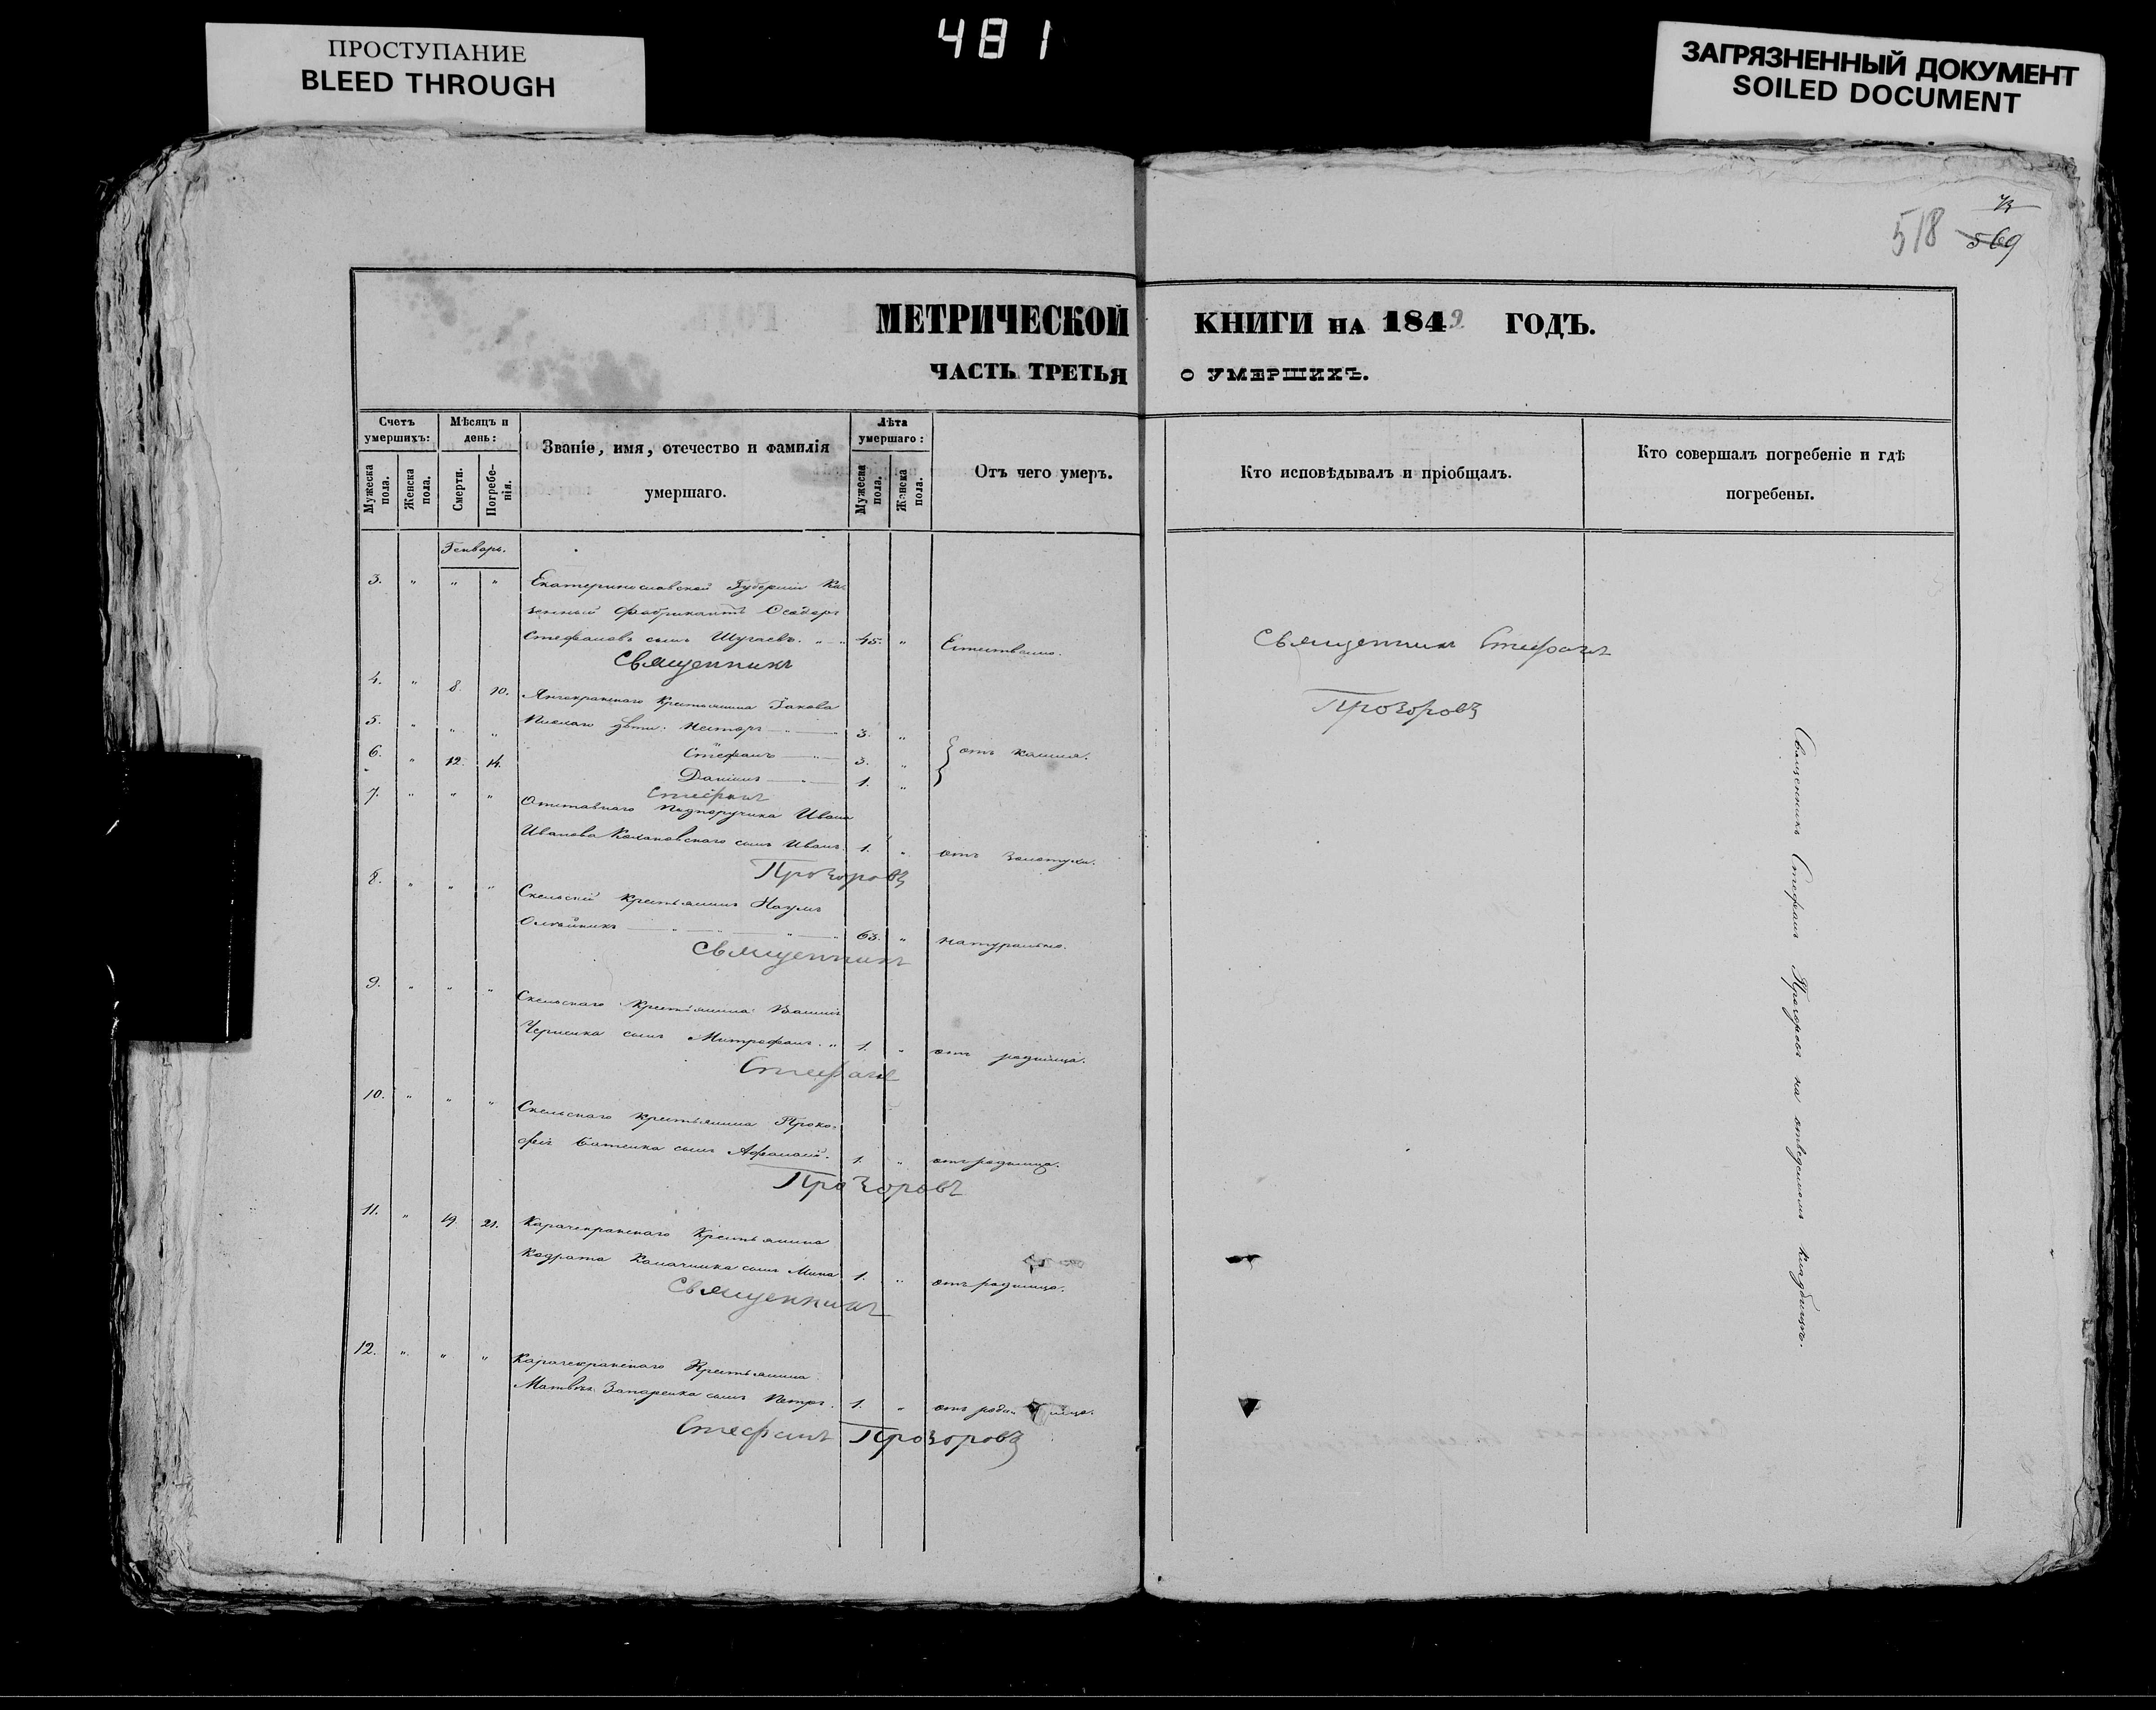 481
ПРОСТУПАНИЕ
BLEED THROUGH
ЗАГРЯЗНЕННЫЙ ДОКУМЕНТ
SOILED DOCUMENT
518 569
МЕТРИЧЕСКОЙ КНИГИ НА 1849 ГОДЪ.
ЧАСТЬ ТРЕТЬЯ О УМЕРШИХЪ.
Счетъ умершихъ:
Мужеска пола.
Женска пола.
Мѣсяцъ и день:
Смерти.
Погребенія.
Званіе, имя, отечество и фамилія
умершаго.
Лѣта умершаго:
Мужеска пола.
Женска пола.
Отъ чего умеръ.
Кто исповѣдывалъ и пріобщалъ.
Кто совершалъ погребеніе и гдѣ
погребены.
Генварь.
3. " " " Екатеринославской Губерніи Ка-
зенный фабрикантъ
Стефановъ сынъ 45. " Естествено.
Священникъ
4. " 8. 10. крестьянина Іакова
5. " " " дѣти: Несторъ 3. "
6. " 12. 14. Стефанъ 3. " отъ кашля.
Даніилъ 1. "
Стефанъ
7. " " " Отставнаго Подпоручика Ивана
Иванова сынъ Иванъ. 1. " отъ золотухи.
Прозоровъ
8. " " " Скельскій крестьянинъ Наумъ
Олѣйникъ 63. " натурально.
Священникъ
9. " " " Скельскаго крестьянина
сынъ Митрофанъ. " 1. " отъ родимца.
Стефанъ
10. " " " Скельскаго крестьянина Проко-
сынъ Афанасій. 1. " отъ родимца.
Прозоровъ
11. " 19 21. Карачекракскаго Крестьянина
Кодрата сынъ Мина 1. " отъ родимца.
Священникъ
12. " " " Карачекракскаго Крестьянина
Матвѣя сынъ Петръ. 1. " отъ
Стефанъ Прозоровъ
Священникъ Стефанъ
Прозоровъ
Священникъ Стефанъ Прозоровъ на отведенномъ кладбищѣ.